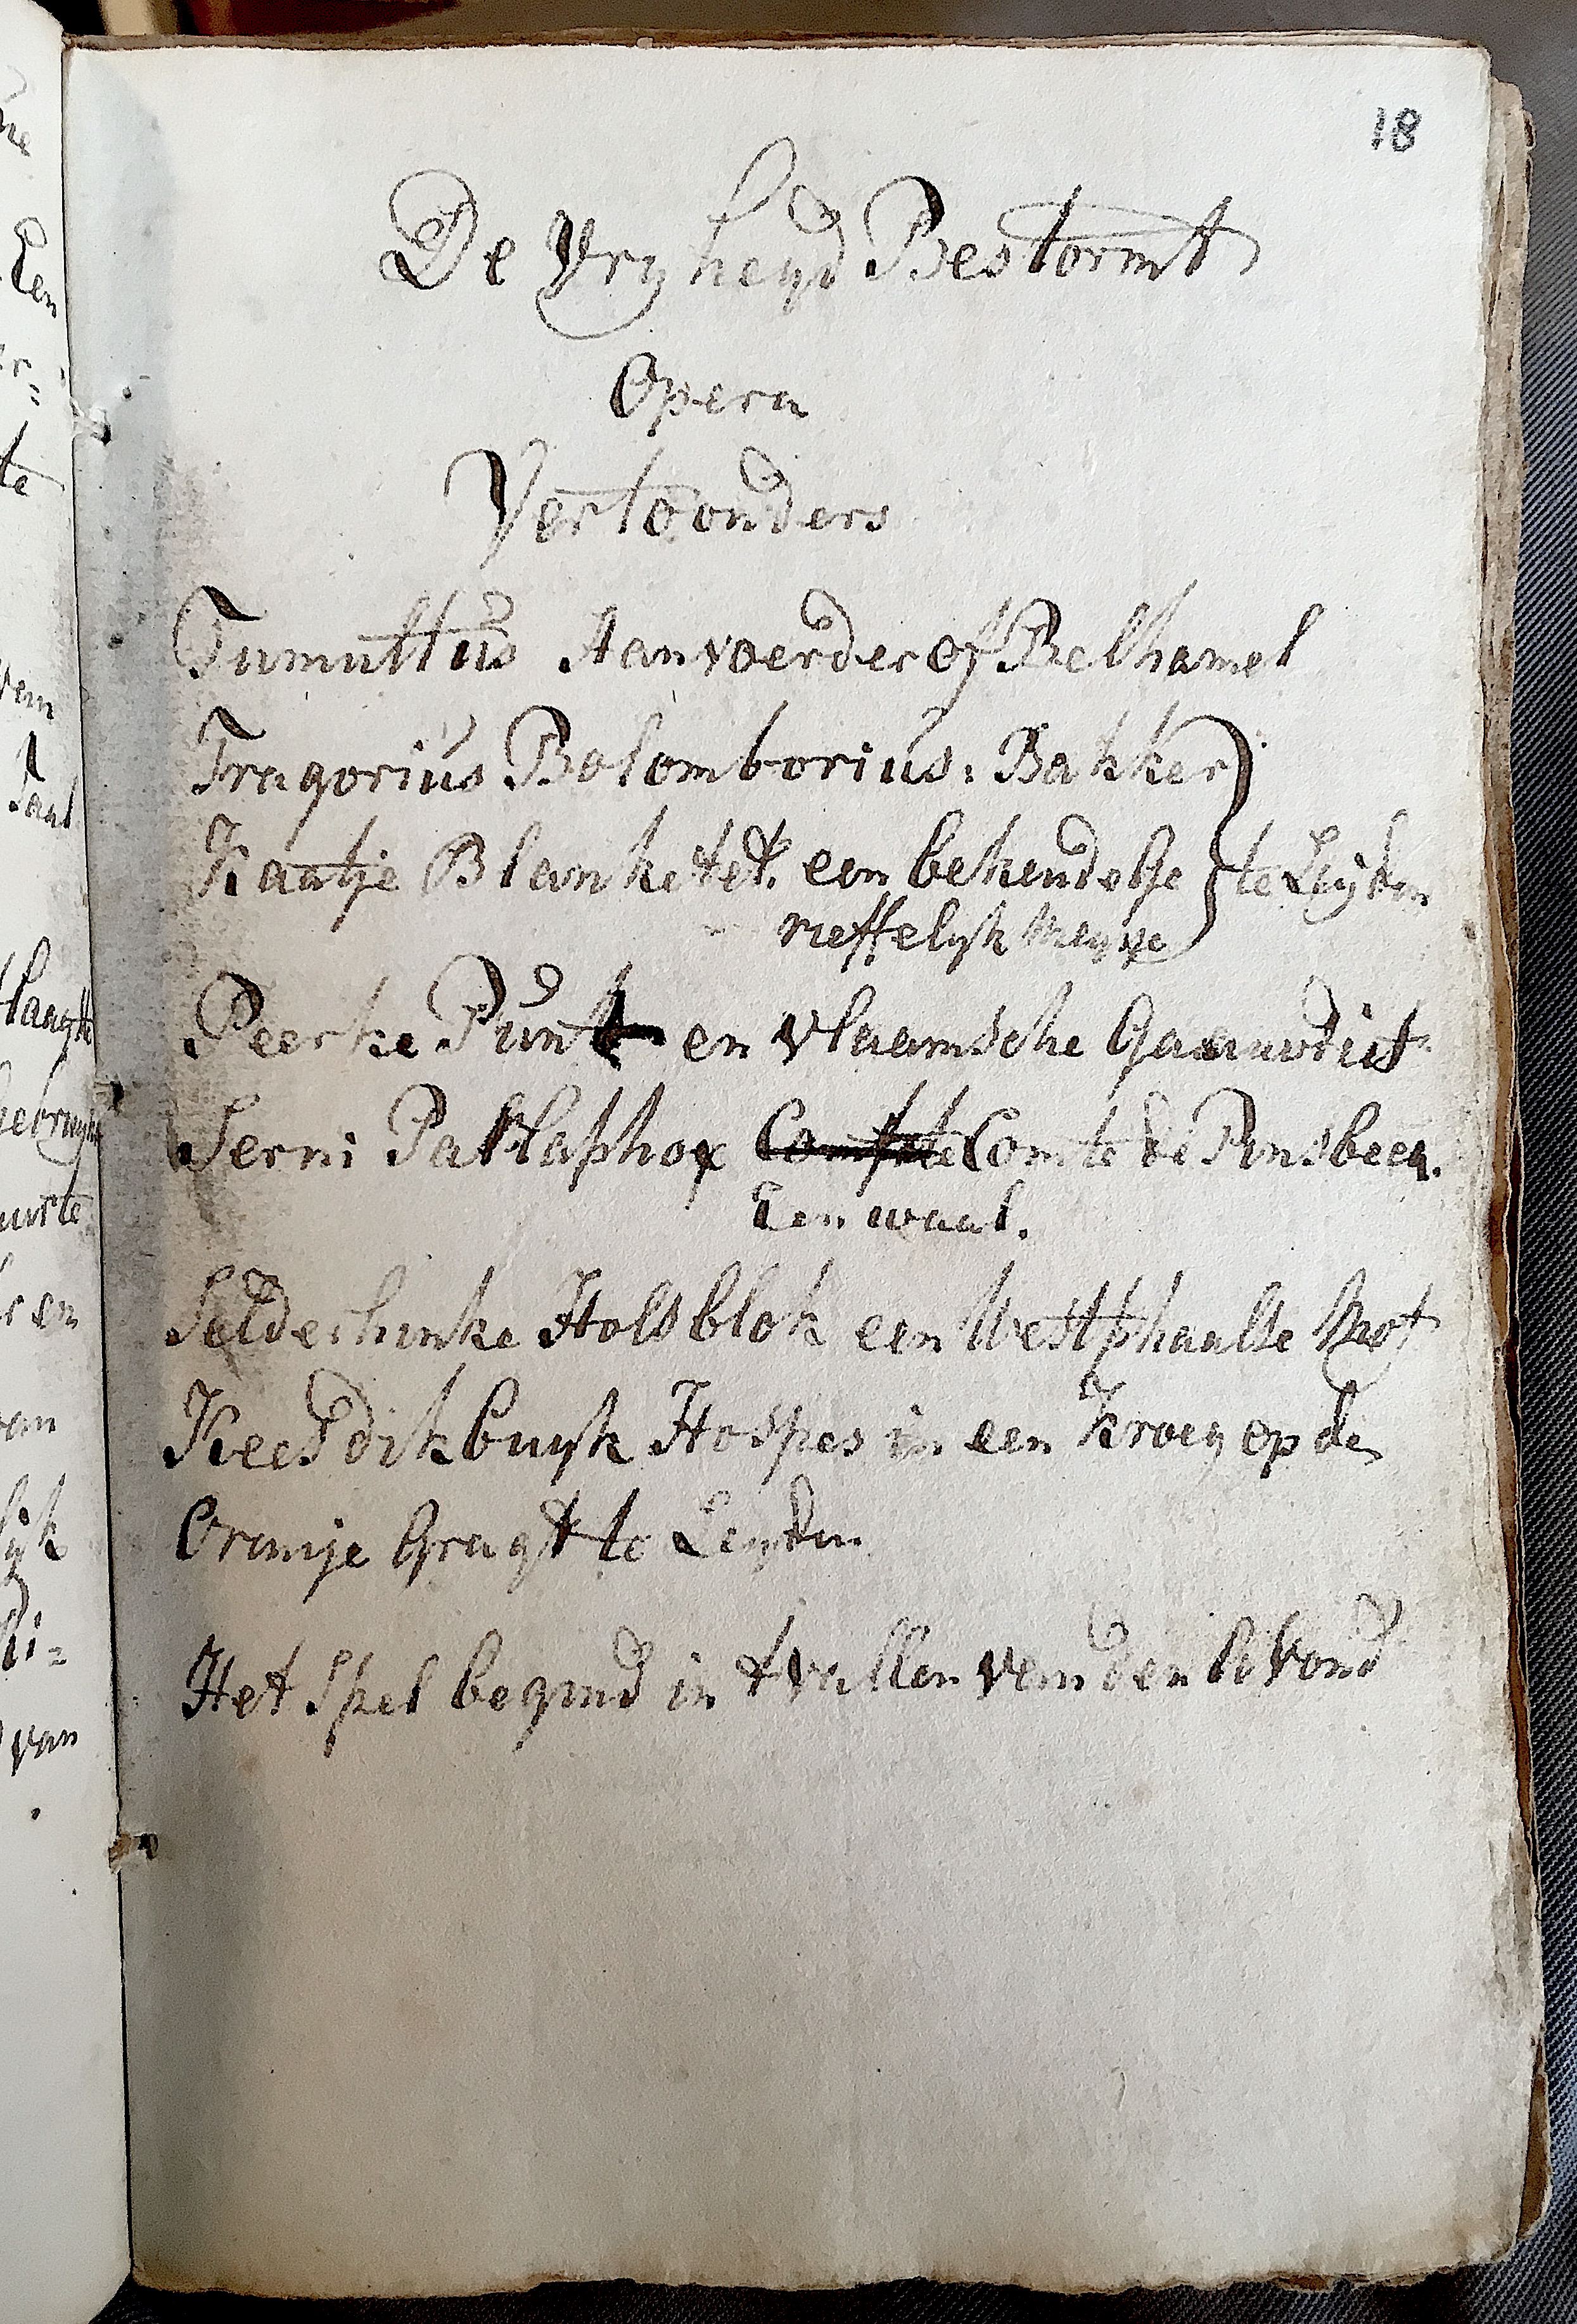 18
De Vryheyd Bestormt
Opera
Vertoonders
Tumultus Aanvoerder of Belhamel
Fragorius Bolomborius: Bakker
Kaatje Blanketet. een bekende te Leyden
neffelyk Meysje
Peerke Punt en vlaamsche Gaauwdief
Serni Patlaphox Comte de Punsbeeq.
Een waal.
Selderhinke Holsblok een Westphaalse Mof
Kees dikbuyk Hospes in een Kroeg op de
Oranje Gragt te Leyden
Het Spel begind in t vallen van den Avond